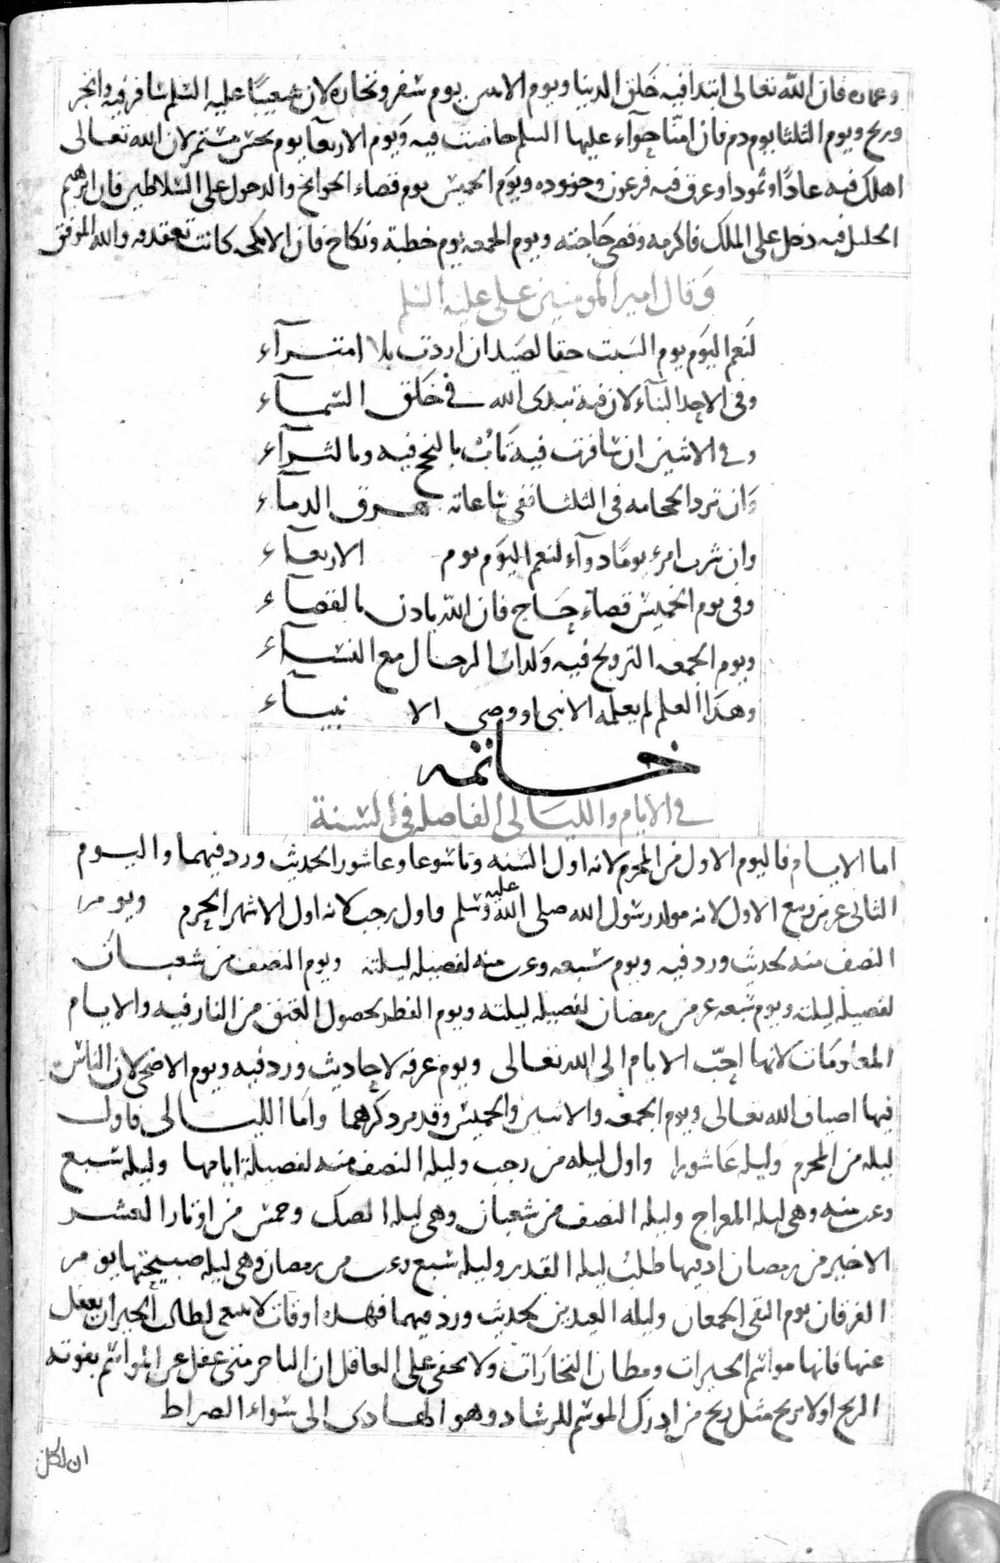 وعماره فان الله تعالى ابتدا فيه خلق الدنيا ويوم الاثنين يوم سفر وتجارة لان شعيبا عليه السلم سافر فيه واتجر
وربح ويوم الثلثا يوم دم فان امنا حوآء عليها السلم حاضت فيه ويوم الاربعآ يوم نحس مستمر لان الله تعالى
اهلك فيه عادا وثمودا وغرق فيه فرعون وجنوده ويوم الخميس يوم قضاء الحوائج والدخول على السلاطين فان ابرهيم
الخليل فيه دخل على الملك فاكرمه وقضى حاجته ويوم الجمعه يوم خطبة ونكاح فان الانكحه كانت تعقد فيه والله الموفق
وقال امير المومنين على عليه السلم
لنعم اليوم يوم السبت حقا لصيد ان اردت بلا امتـرآء
وفى الاحد البنآء لان فيه تبدى الله فى خلق السمآء
وفى الاثنين ان سافرت فيه تأب بالنجح فيه وبالثرآء
وان ترد الحجامه فى الثلثا ففى ساعاته هرق الدمآء
وان شرب امرء يوما دوآء لنعم اليوم يوم الاربعآء
وفى يوم الخميس قضآء حاج فان الله ياذن بالقضآء
ويوم الجمعه التزويج فيه ولذات الرجال مع النسآء
وهذا العلم لم يعلمه الا نبى او وصى الانبيآء
خاتمه
فى الايام والليالى الفاضله فى السنة
اما الايام فاليوم الاول من المحرم لانه اول السنه وتاسوعا وعاشورا لحديث ورد فيهما واليوم
الثانى عشر من ربيع الاول لانه مولد رسول الله صلى الله عليه وسلم واول رجب لانه اول الاشهر الحرم ويوم
النصف منه لحديث ورد فيه ويوم سبعه وعشرين منه لفضيله ليلته ويوم النصف من شعبان
لفضيلة ليلته ويوم سبعه عشر من رمضان لفضيله ليلته ويوم الفطر لحصول العتق من النار فيه والايام
المعلومات لانها احب الايام الى الله تعالى ويوم عرفه لاحاديث ورد فيه ويوم الاضحى لان الناس
فيها اضياف الله تعالى ويوم الجمعه والاثنين والخميس وقد مر ذكرهما واما الليالى فاول
ليله من المحرم وليله عاشورا واول ليله من رجب وليله النصف منه لفضيلة ايامها وليله سبع
وعشرين منه وهى ليله المعراج وليله النصف من شعبان وهى ليله الصك وخمس من اوتار العشر
الاخير من رمضان اذ فيها طلب ليله القدر وليله سبع عشر من رمضان وهى ليله صبيحتها يوم
الفرقان يوم التقى الجمعان وليله العيدين لحديث ورد فيهما فهذه اوقات لا ينبغى لطالب الخير ان يغفل
عنها فانها مواسم الخيرات ومظان التجارات ولا يخفى على العاقل ان التاجر متى غفل عن المواسم يفوته
الربح اولا يربح مثل ربح من ادرك الموسم للرشاد وهو الهادى الى سواء الصراط
ان لكل